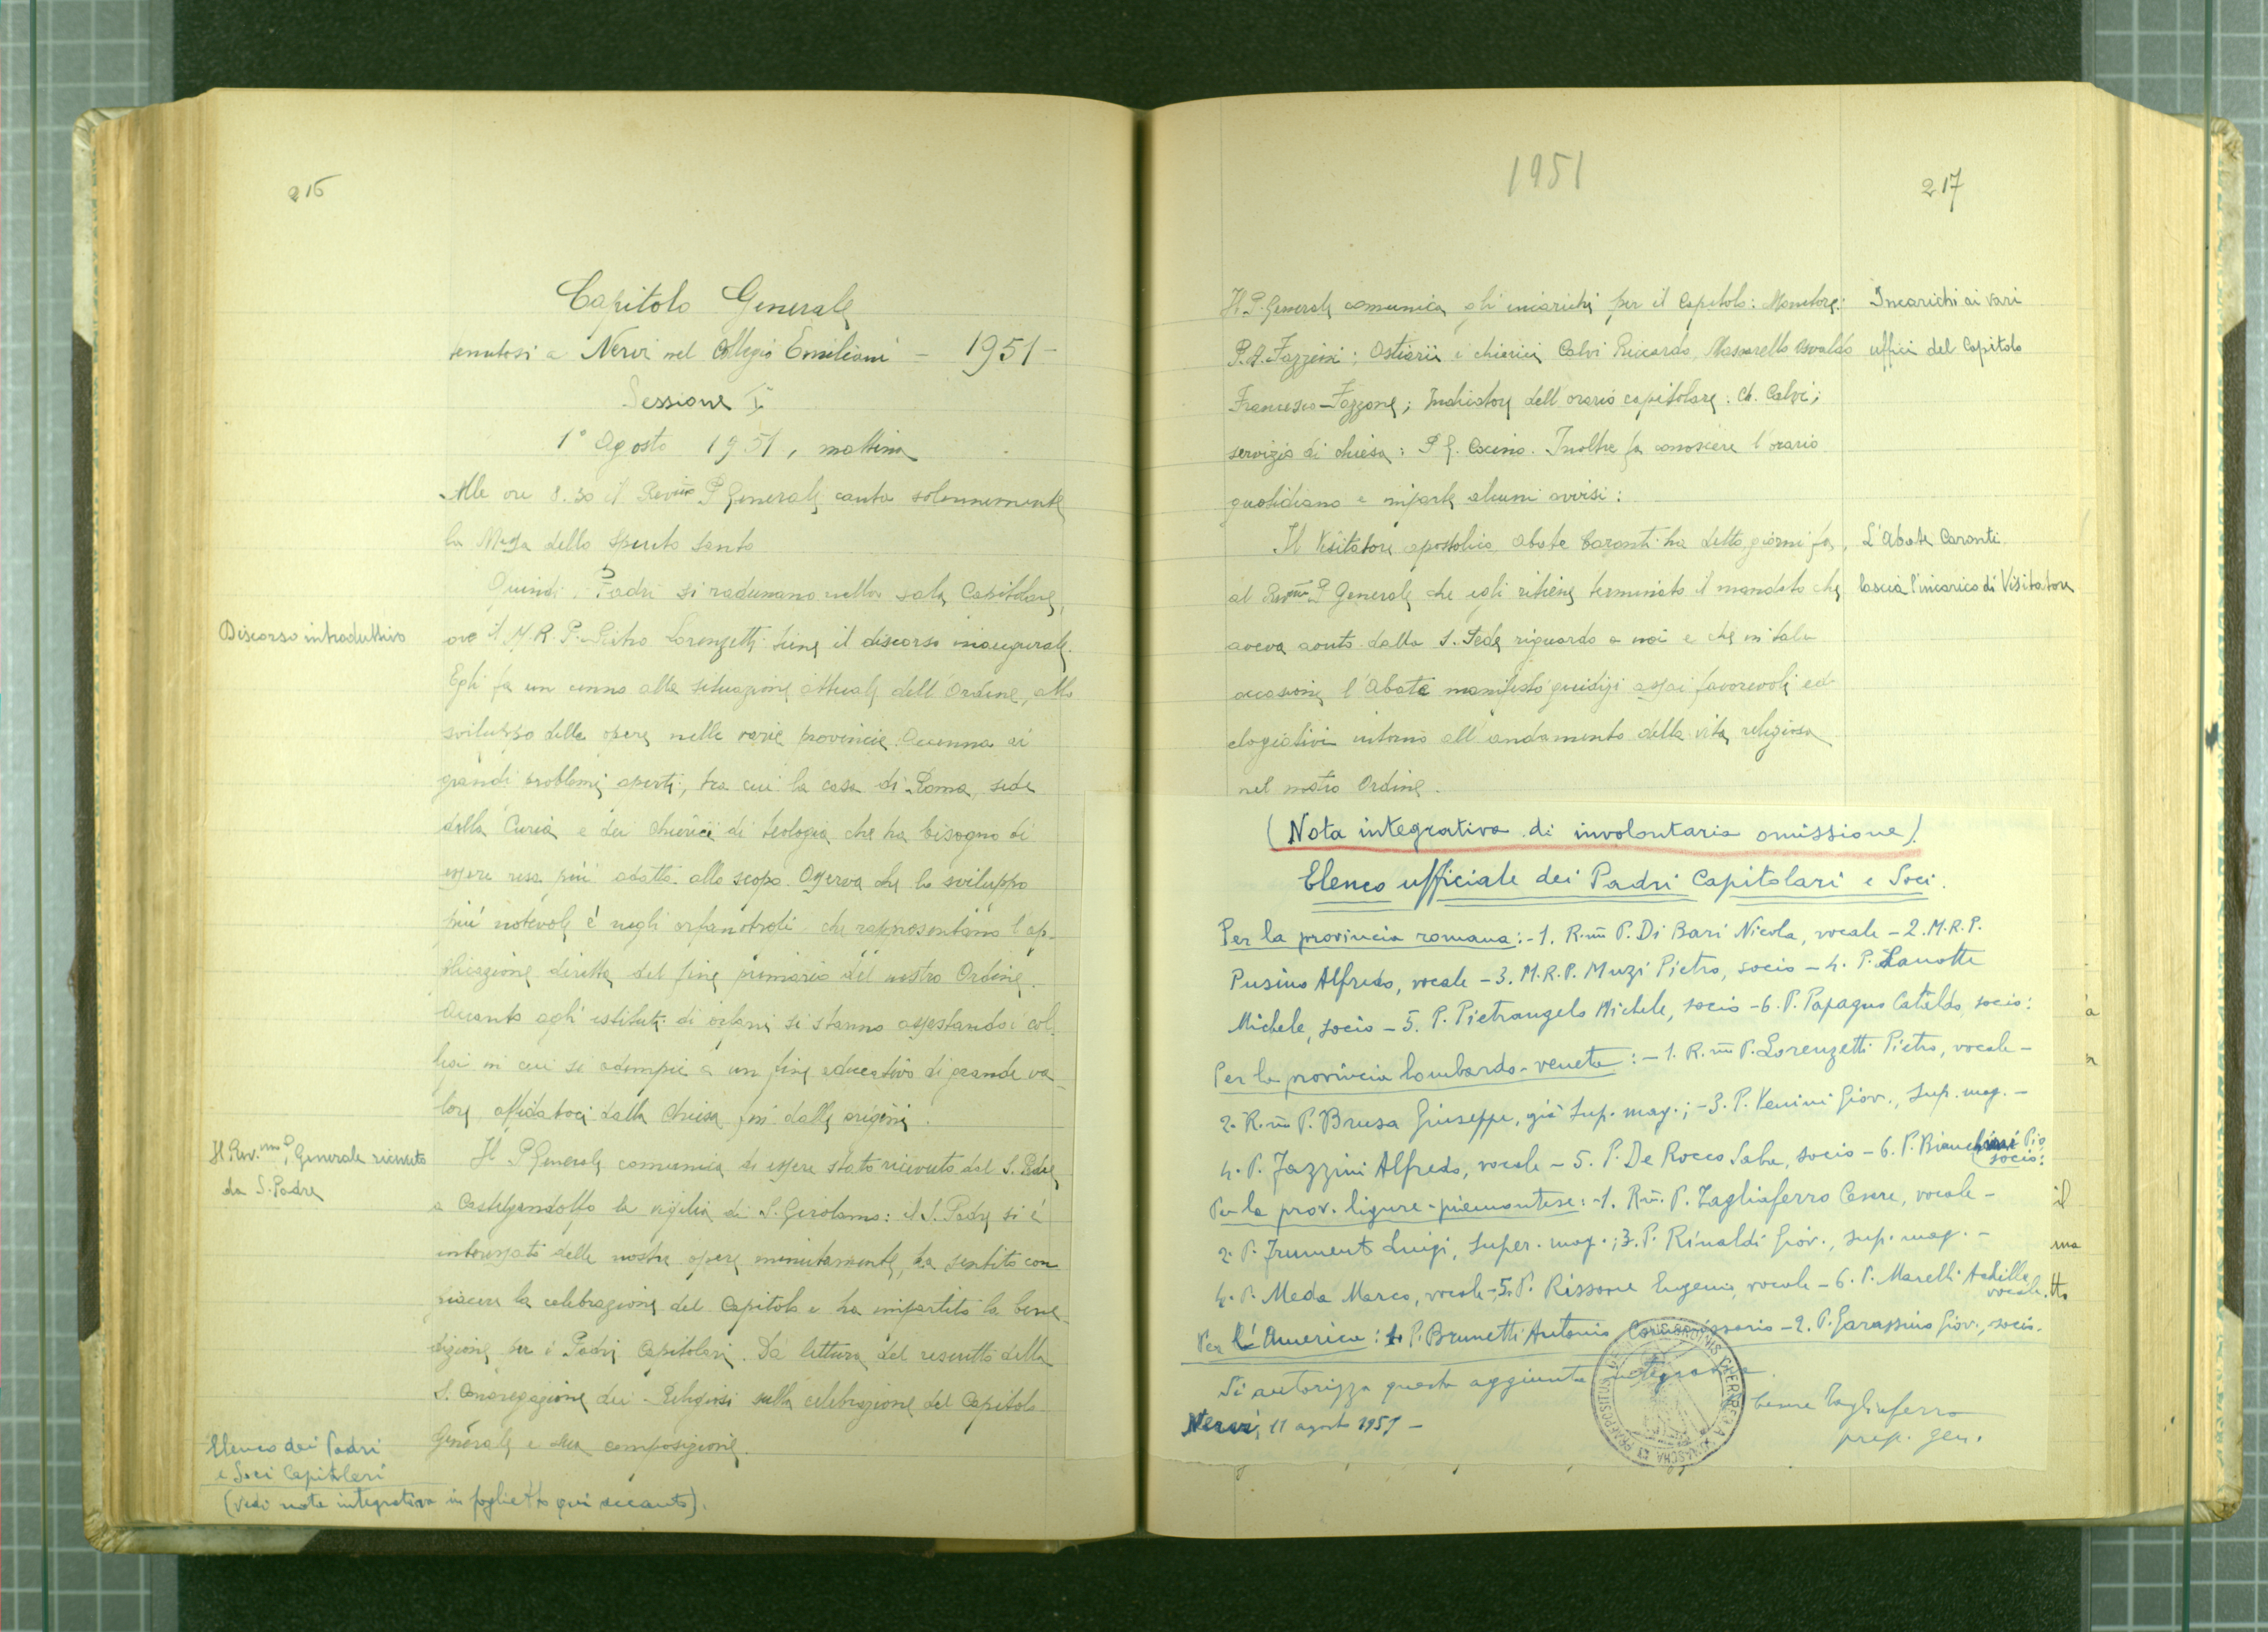 216
Capitolo Generale
tenutosi a Nervi nel Collegio Emiliani - 1951 -
Sessione I
1° Agosto 1951, mattina
Alle ore 8.30 il Rev.mo P. Generale canta solennemente
la Messa dello Spirito Santo
Quindi i Padri si radunano nella sala Capitolare,
ove il M.R.P. Pietro Lorenzetti tiene il discorso inaugurale.
Discorso introduttivo
Egli fa un cenno alla situazione attuale dell'Ordine, allo
sviluppo delle opere nelle varie provincie. Accenna ai
grandi problemi aperti, tra cui la casa di Roma, sede
della Curia e dei Chierici di teologia che ha bisogno di
essere resa più adatta allo scopo. Osserva che lo sviluppo
più notevole è negli orfanotrofi che rappresentano l'ap-
plicazione diretta del fine primario del nostro Ordine.
Accanto agli istituti di orfani si stanno assestando i col-
legi in cui si adempie a un fine educativo di grande va-
lore, affidatoci dalla Chiesa fin dalle origini.
Il Rev.mo P. Generale ricevuto
da S. Padre
Il P. Generale comunica di essere stato ricevuto dal S. Padre
a Castelgandolfo la vigilia di S. Girolamo: il S. Padre si è
interessato delle nostre opere minutamente, ha sentito con
piacere la celebrazione del Capitolo e ha impartito la bene-
dizione per i Padri Capitolari. Dà lettura del rescritto della
S. Congregazione dei Religiosi sulla celebrazione del Capitolo
Generale e sua composizione.
Elenco dei Padri
e Soci Capitolari
(vedi nota integrativa in foglietto qui accanto).
1951
217
Il P. Generale comunica gli incarichi per il Capitolo: Monitore:
P. A. Fazzini; Ostiarii i chierici Calvi Riccardo, Massarello Osvaldo
Francesco Fazzone; Indicatore dell'orario capitolare: Ch. Calvi;
servizio di chiesa: P. G. Cocino. Inoltre fa conoscere l'orario
quotidiano e imparte alcuni avvisi:
Incarichi ai vari
uffici del Capitolo
Il Visitatore apostolico Abate Caronti ha detto giorni fa,
al Rev.mo P. Generale che egli ritiene terminato il mandato che
aveva avuto dalla S. Sede riguardo a noi e che in tale
occasione l'Abate manifestò giudizi assai favorevoli ed
elogiativi intorno all'andamento della vita religiosa
nel nostro Ordine.
L'Abate Caronti
lascia l'incarico di Visitatore
(Nota integrativa di involontaria omissione).
Elenco ufficiale dei Padri Capitolari e Soci.
Per la provincia romana: - 1. R.mo P. Di Bari Nicola, vocale - 2. M.R.P.
Pusino Alfredo, vocale - 3. M.R.P. Muzi Pietro, socio - 4. P. Lanotte
Michele, socio - 5. P. Pietrangelo Michele, socio - 6. P. Papagno Cataldo, socio:
Per la provincia lombardo-veneta: - 1. R.mo P. Lorenzetti Pietro, vocale -
2. R.mo P. Brusa Giuseppe, già Sup. mag.; - 3. P. Venini Giov., Sup. mag. -
4. P. Fazzini Alfredo, vocale - 5. P. De Rocco Saba, socio - 6. P. Bianchini Pio
socio:
Per la prov. ligure-piemontese: - 1. R.mo P. Tagliaferro Cesare, vocale -
2. P. Frumento Luigi, super. mag.; 3. P. Rinaldi Giov., sup. mag. -
4. P. Meda Marco, vocale - 5. P. Rissone Eugenio, vocale - 6. P. Marelli Achille
vocale.
Per l'America: 1. P. Brunetti Antonio Commissario - 2. P. Garassino Giov., socio.
Si autorizza questa aggiunta integrativa.
Cesare Tagliaferro
prep. gen.
Nervi, 11 agosto 1951 -
il
ma
tto